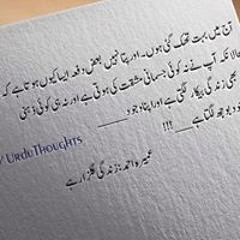 آج میں بہت تھک گئی ہوں۔ اور پتا نہیں بعض دفعہ ایسا کیوں ہوتا ہے کہ
حالانکہ آپ نے نہ کوئی جسمانی مشقت کی ہوتی ہے اور نہ ہی کوئی ذہنی
بھی زندگی بیکار لگتی ہے اور اپنا وجود ______
بوجھ لگتا ہے ___ !!!
UrduThoughts
عمیرہ احمد: زندگی گلزار ہے